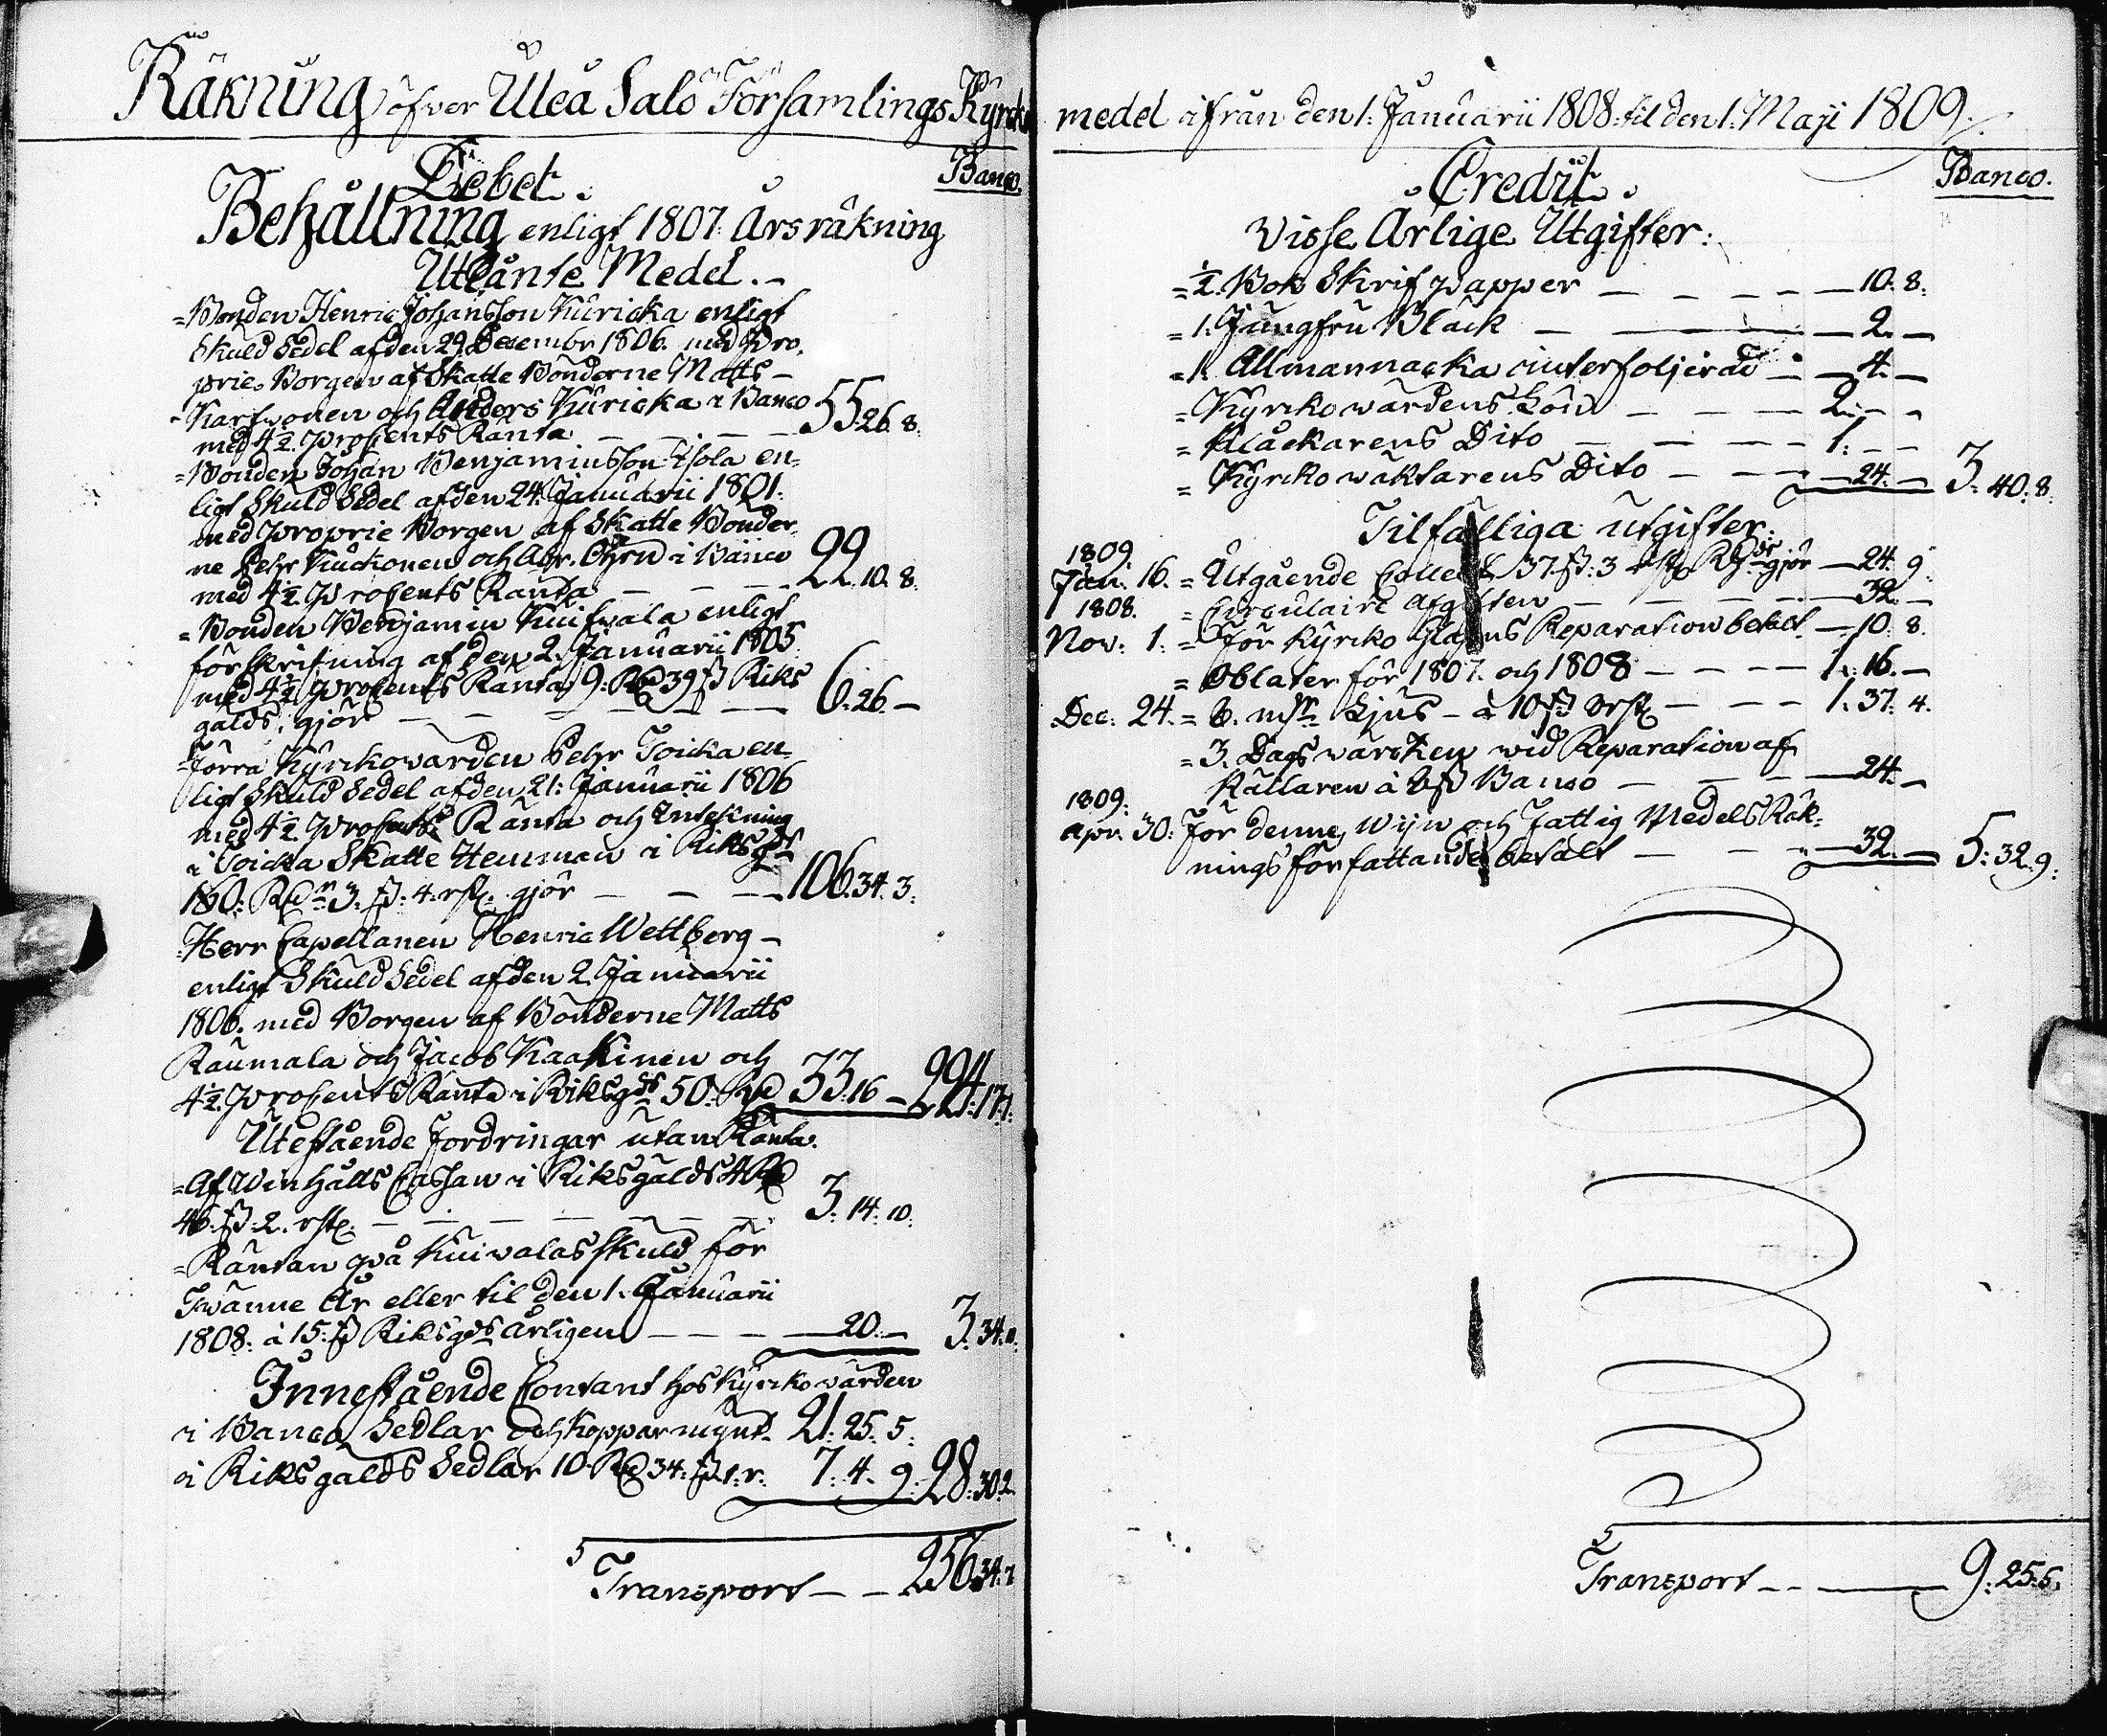 Räkning öfwer Uleå Salo Församlings Kyrcko
Debet.
Banco.
Behållning enligt 1807 Års räkning
Utlånte Medel.
=Bonden Henric Johansson Kuricka enligt
Skuld Sedel af den 29. Decembr 1806. med Pro.
prie Borgen af Skatte Bönderne Matts
Karfwonen och Anders Kuricka i Banco
med 4 1/2. Procents Ränta — — — 55. 26. 8.
=Bonden Johan Benjaminsson Isola en=
ligt Skuld Sedel af den 24. Januarii 1801.
med proprie Borgen af Skatte Bönder
ne Pehr Kuckonen och Abr. Öhrn i Banco
med 4 1/2 Procents Ränta — — — 22. 10. 8.
=Bonden Benjamin Kuifwala enligt
förskrifning af den 2. Januarii 1805.
med 4 1/2 Procents Ränta, 9: Rd 39 ß Riks
gälds, gjör — — — 6. 26. —
=Förra Kyrckowärden Pehr Toicka en
ligt Skuld Sedel af den 21: Januarii 1806
med 4 1/2 Procents Ränta och Inteckning
i Toicka Skatte Hemman i Riksgds
160: Rdr 3. ß: 4. rst: gjör — — — 106. 34. 3.
=Herr Capellanen Henric Wettberg
enligt Skuld Sedel af den 2. Januarii
1806. med Borgen af Bönderne Matts
Raumala och Jacob Kaakinen och
4 1/2. Procents Ränta i Riksgds 50. Rd 33. 16 — 224: 17. 7.
Utestående Fordringar utan Ränta.
=Af Winhålls Cassan i Riksgälds 4 Rd
46. ß. 2. rst. — — — 3. 14. 10.
=Räntan på Kuiwalas skuld för
Twänne År eller til den 1. Januarii
1808. à 15. ß Riksgds årligen — — — 20. — 3. 34. 10.
Innestående Contant hos Kyrckowärden
i Banco Sedlar och Kopparmynt. 21. 25. 5.
i Riksgälds Sedlar 10. Rd 34. ß. 1. r. 7. 4. 9. 28. 30. 2.
Transport — — 256. 34. 7
medel ifrån den 1. Januarii 1808. til den 1. Maji 1809.
Credit.
Banco.
Visse Årlige Utgifter:
=1/2. Bok Skrif papper — — — 10. 8.
=1. Jungfru Bläck — — — 2. —
=1. Allmannacka interfoljerad — 4. —
=Kyrckowärdens Lön — — — 2. — —
=Klåckarens Dito — — — 1: — —
=Kyrckowäktarens Dito — — — 24. — 3. 40. 8.
Tilfälliga utgifter.
1809.
Jan: 16. = Utgående Collect 37 ß. 3 rst Rgdr gjör — 24. 9.
1808. = Circulaire afgiften — — — 32. —
Nov: 1: = För Kyrcko Glasens Reparation betalt. — 10. 8.
=Oblater för 1807. och 1808 — — — 1. 16. —
Dec: 24. = 8. mkr Ljus — à 10 ß 8 rst — — 1. 37. 4.
=3. Dagswärcken wid Reparation af
Källaren à 8 ß Banco — — — 24. —
1809:
Apr. 30: För denne, Wijn och Fattig Medels Räk=
nings författande betalt — — — 32. — 5: 32. 9.
Transport — — — 9. 25. 5.